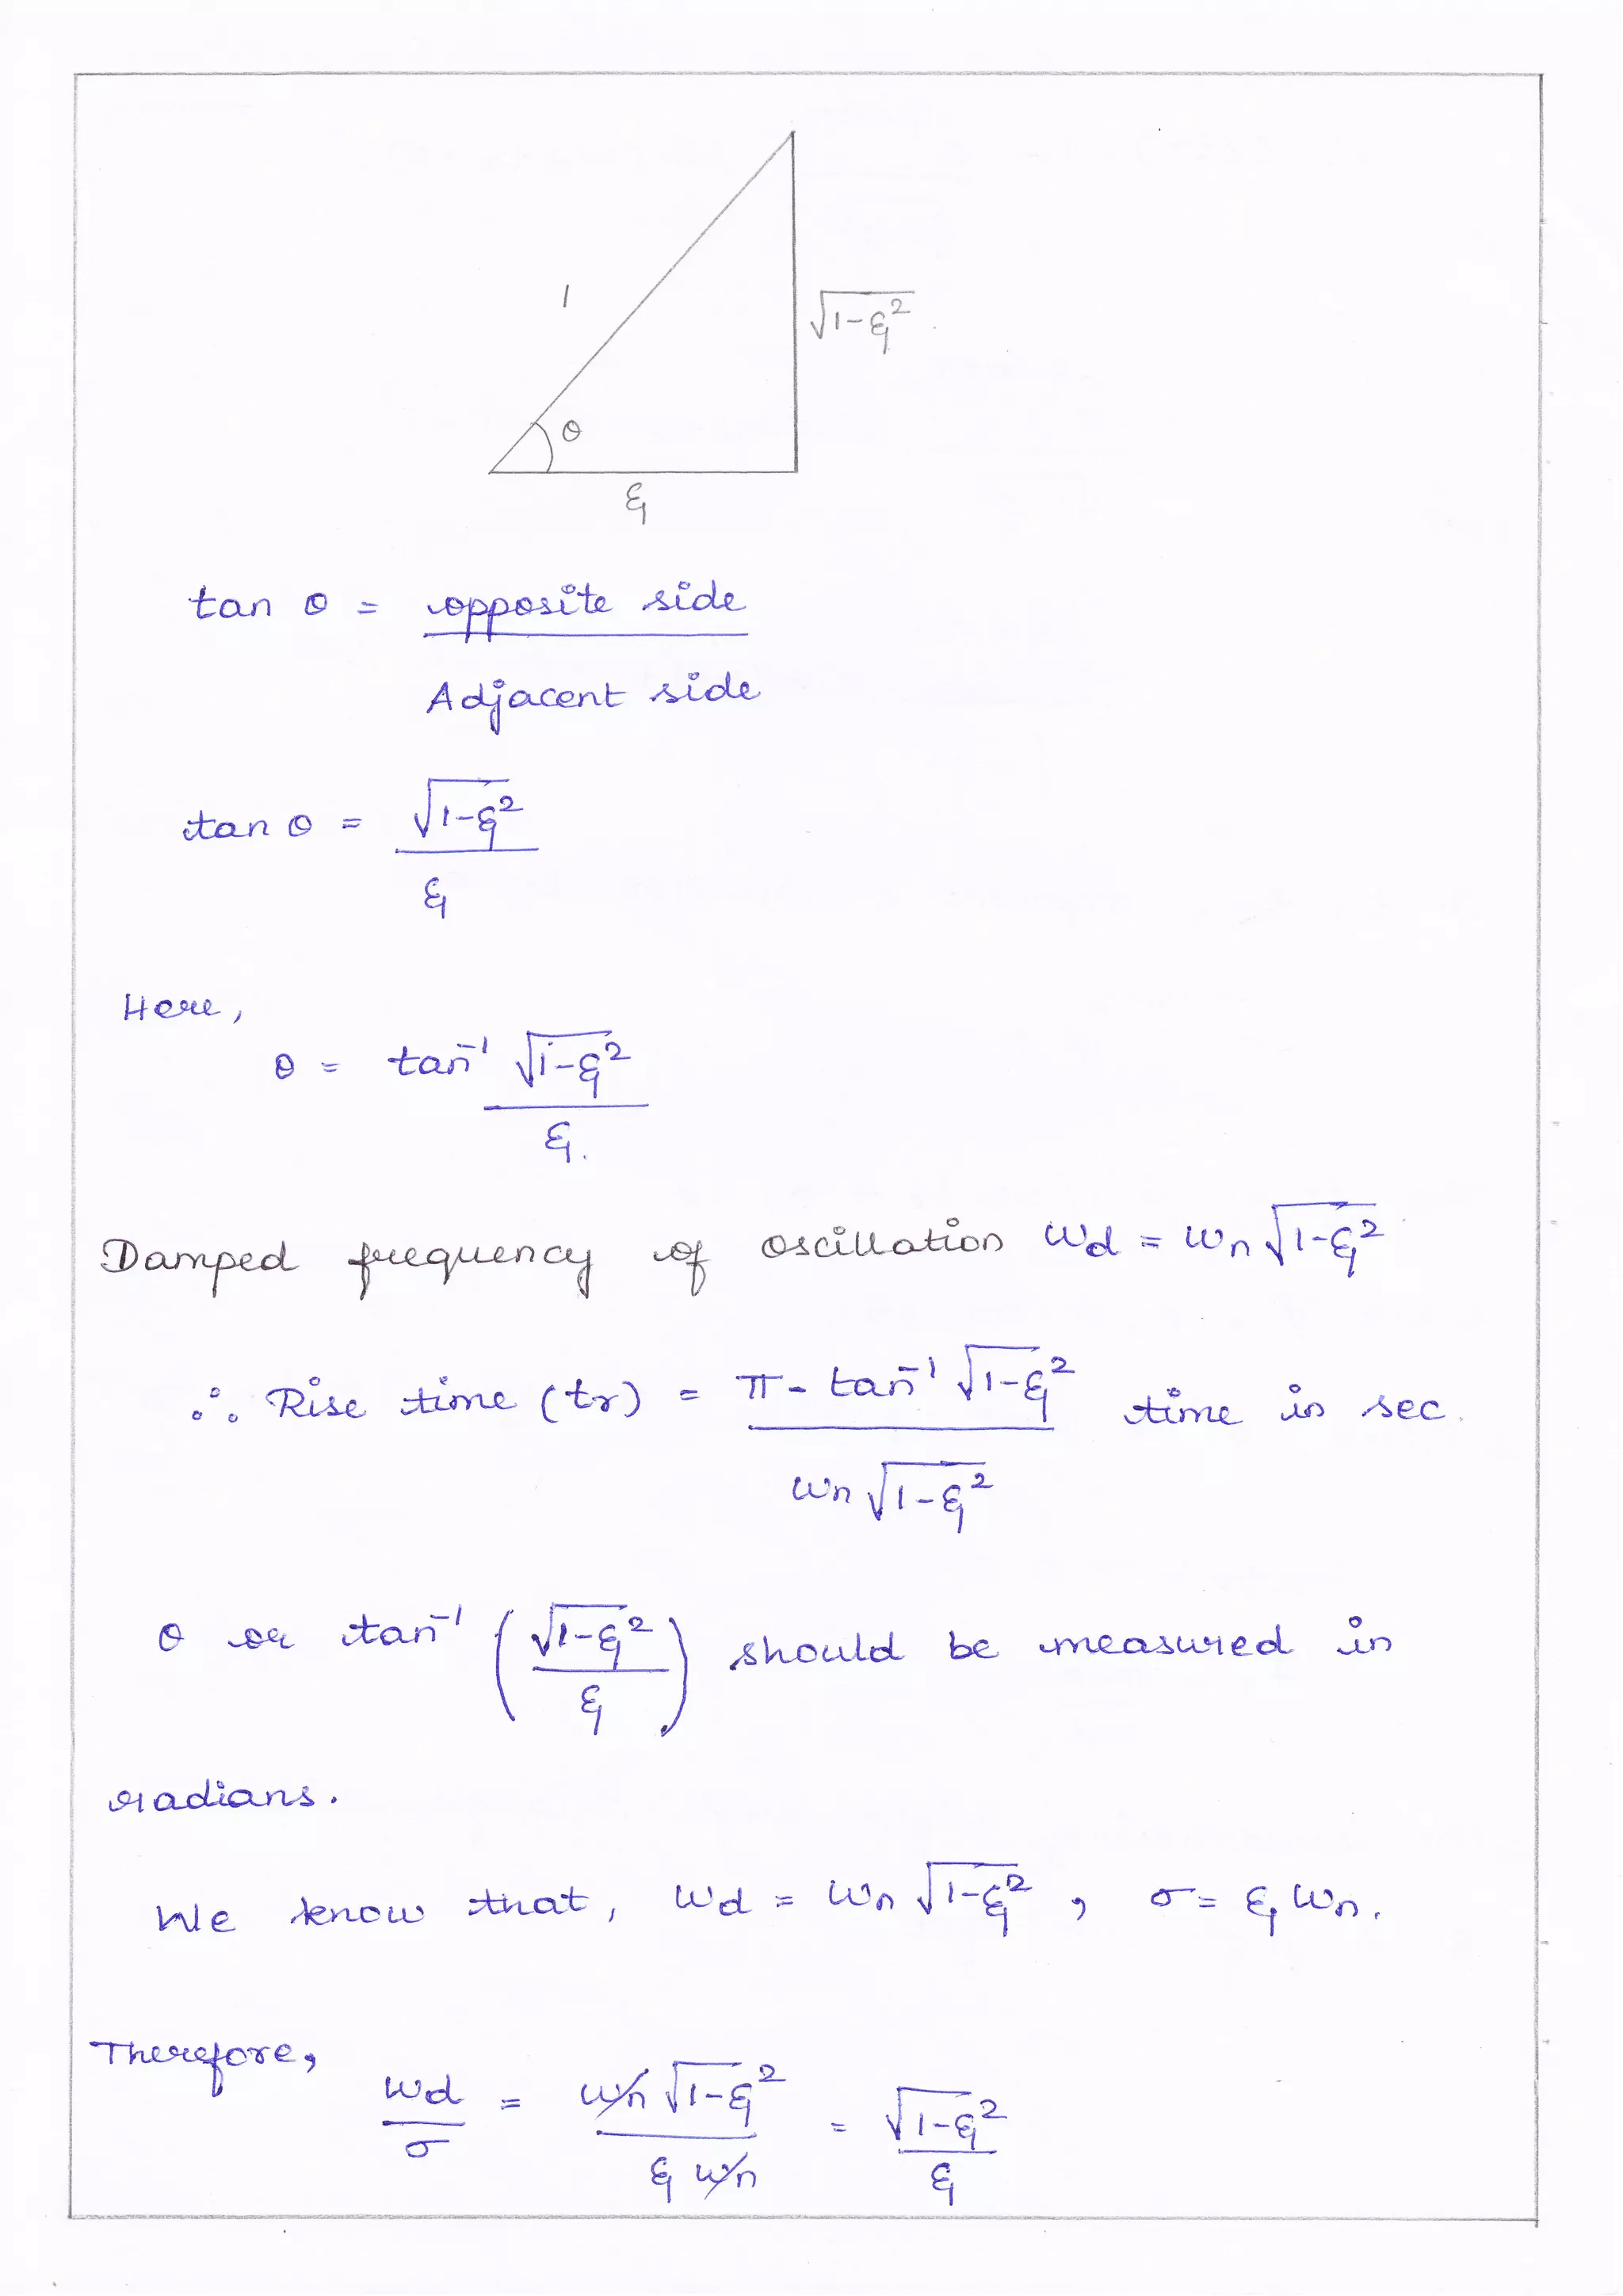 1
√1-ξ²
θ
ξ
tan θ = opposite side
Adjacent side
tan θ = √1-ξ²
ξ
Here,
θ = tan⁻¹ √1-ξ²
ξ.
Damped frequency of oscillation ωd = ωn √1-ξ²
∴ Rise time (tr) = π - tan⁻¹ √1-ξ² time in sec.
ωn √1-ξ²
θ or tan⁻¹ (√1-ξ² / ξ) should be measured in
radians.
We know that, ωd = ωn √1-ξ² , σ = ξ ωn.
Therefore,
ωd / σ = ωn √1-ξ² / ξ ωn = √1-ξ² / ξ